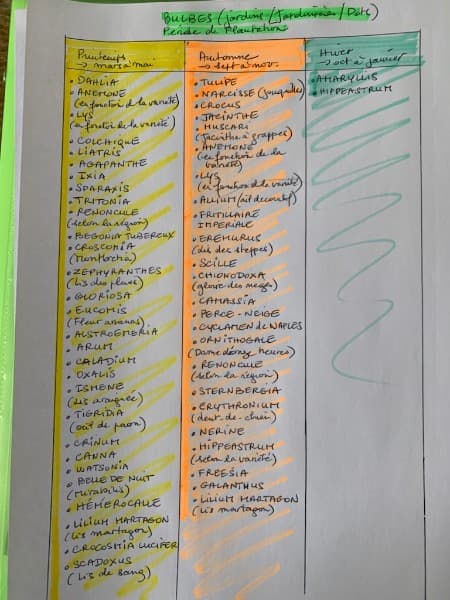 BULBES (jardins/jardinières/Pots)
Période de Plantation
Printemps
→ mars à mai
• DAHLIA
• ANEMONE
(en fonction de la variété)
• LYS
(en fonction de la variété)
• COLCHIQUE
• LIATRIS
• AGAPANTHE
• IXIA
• SPARAXIS
• TRITONIA
• RENONCULE
(selon la région)
• BEGONIA TUBEREUX
• CROSCOMIA
(Montbretia)
• ZEPHYRANTHES
(Lis des pluies)
• GLORIOSA
• EUCOMIS
(Fleur ananas)
• ALSTROEMERIA
• ARUM
• CALADIUM
• OXALIS
• ISMENE
(Lis araignée)
• TIGRIDIA
(œil de paon)
• CRINUM
• CANNA
• WATSONIA
• BELLE DE NUIT
(Mirabilis)
• HÉMÉROCALLE
• LILIUM MARTAGON
(lis martagon)
• CROCOSMIA LUCIFER
• SCADOXUS
(Lis de sang)
Automne
→ sept à nov.
• TULIPE
• NARCISSE (jonquilles)
• CROCUS
• JACINTHE
• MUSCARI
(Jacinthe à grappes)
• ANEMONE
(en fonction de la
variété)
• LYS
(en fonction de la variété)
• ALLIUM (ail décoratif)
• FRITILLAIRE
IMPERIALE
• EREMURUS
(Lis des steppes)
• SCILLE
• CHIONODOXA
(gloire des neiges)
• CAMASSIA
• PERCE-NEIGE
• CYCLAMEN DE NAPLES
• ORNITHOGALE
(Dame d'onze heures)
• RENONCULE
(selon la région)
• STERNBERGIA
• ERYTHRONIUM
(dent-de-chien)
• NERINE
• HIPPEASTRUM
(selon la variété)
• FREESIA
• GALANTHUS
• LILIUM MARTAGON
(lis martagon)
Hiver
→ oct à janvier
• AMARYLLIS
• HIPPEASTRUM